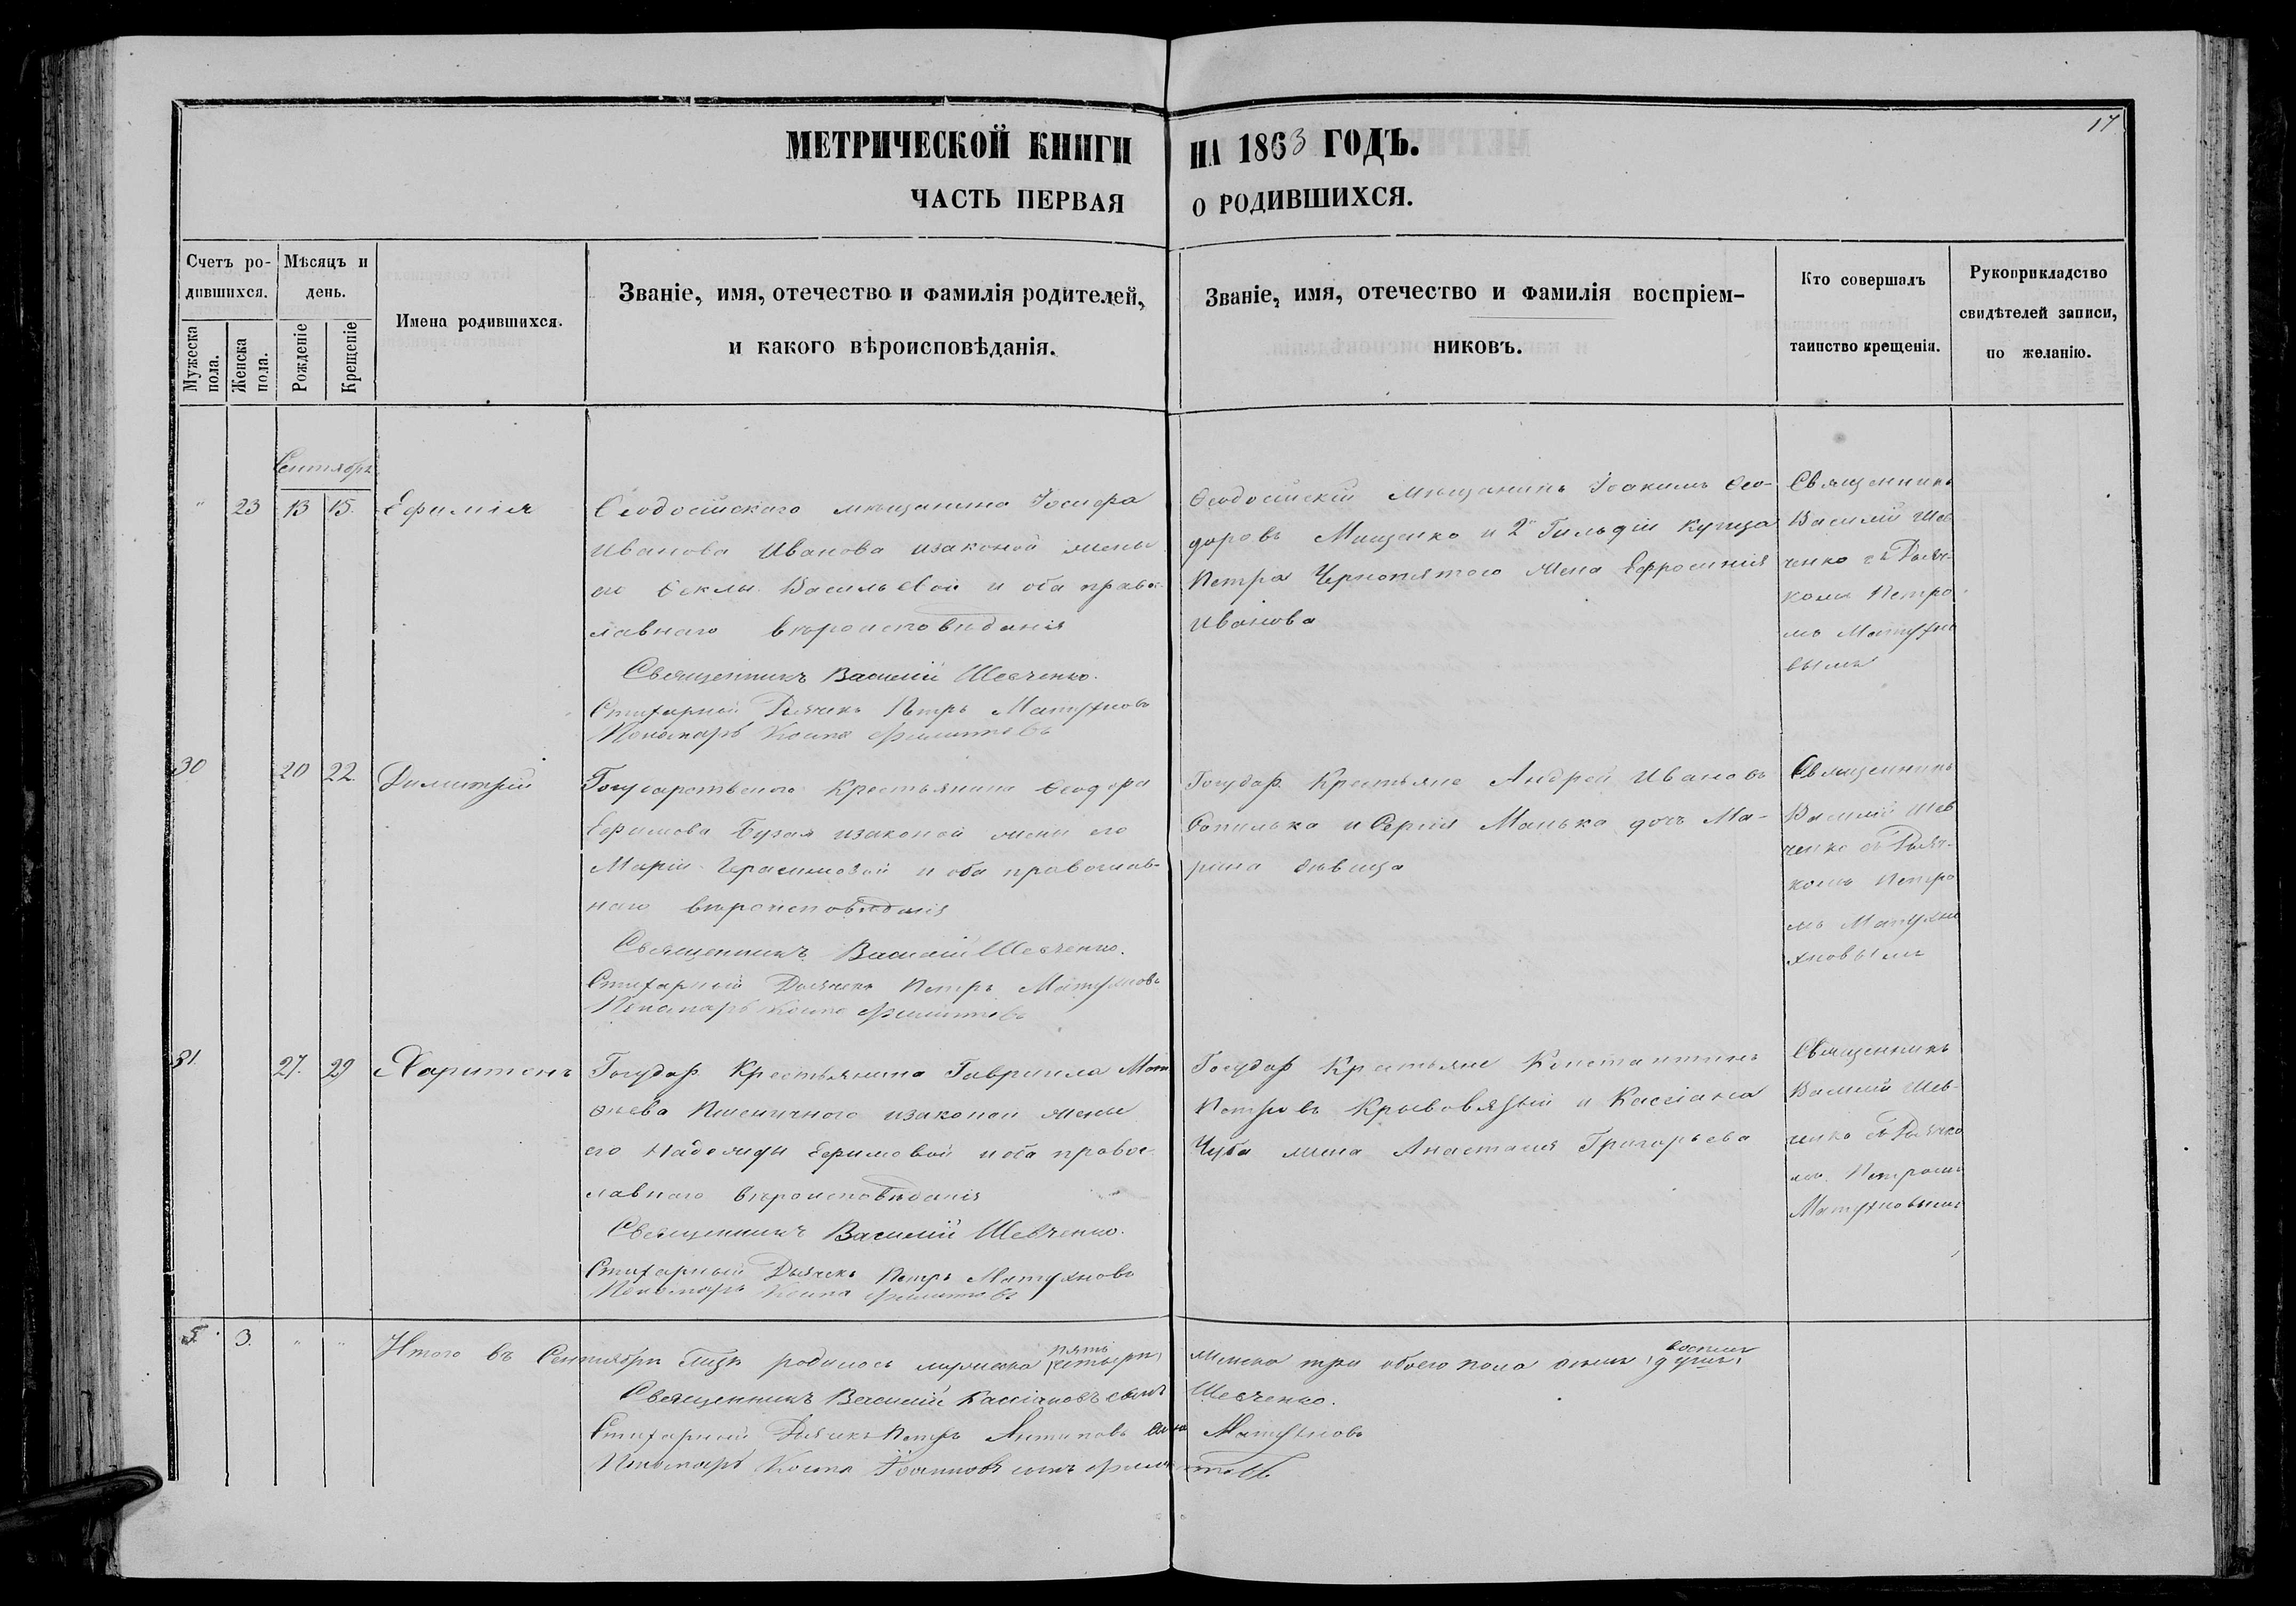 17
МЕТРИЧЕСКОЙ КНИГИ НА 1863 ГОДЪ.
ЧАСТЬ ПЕРВАЯ О РОДИВШИХСЯ.
Счетъ ро-
дившихся.
Мужеска
пола.
Женска
пола.
Мѣсяцъ и
день.
Рожденіе
Крещеніе
Имена родившихся.
Званіе, имя, отечество и фамилія родителей,
и какого вѣроисповѣданія.
Званіе, имя, отечество и фамилія воспріем-
никовъ.
Кто совершалъ
таинство крещенія.
Рукоприкладство
свидѣтелей записи,
по желанію.
Сентябрь
" 23 13 15. Ефимія
Ѳеодосійскаго мѣщанина Іосифа
Иванова Иванова изаконой жены
его Ѳеклы Васильевой и оба правос-
лавнаго вѣроисповѣданія
Священникъ Василій Шевченко.
Стихарный Дьячекъ Петръ Матухновъ
Пономарь Косма
Ѳеодосійскій мѣщанинъ Іоакимъ Ѳео-
доровъ Мищенко и 2й Гильдіи купца
Петра Чернопятого жена Ефросинія
Иванова
Священникъ
Василій Шев
ченко съ Дьяч-
комъ Петро
мъ Матухно
вымъ
30 20 22. Димитрій
Государственого Крестьянина Ѳеодора
Ефимова Бугая изаконой жены его
Маріи Герасимовой и оба православ-
наго вѣроисповѣданія
Священникъ Василій Шевченко.
Стихарный Дьячекъ Петръ Матухновъ
Пономарь Косма
Государ. Крестьяне Андрей Ивановъ
Сопилька и Сергія Манька дочь Ма-
рина дѣвица
Священникъ
Василій Шев
ченко съ Дьяч-
комъ Петро
мъ Матухно
хновымъ
31 27. 29 Харитонъ
Государ. Крестьянина Гавриила Мат
ѳѣева Пшеничного изаконой жены
его Надежды Ефимовой и оба правос-
лавнаго вѣроисповѣданія
Священникъ Василій Шевченко.
Стихарный Дьячекъ Петръ Матухновъ
Пономарь Косма
Государ. Крестьяне Константинъ
Петровъ Крывовязый и Кассіана
Чуба жена Анастасія Григорьева
Священникъ
Василій Шев-
ченко съ Дьячко
мъ Петромъ
Матухновымъ
5. 3. " " Итого въ Сентябрѣ родилось мужеска пять женска три обоего пола восемь душъ
Священникъ Василій Кассіановъ сынъ Шевченко.
Стихарный Дьячекъ Петръ Антиповъ сынъ Матухновъ
Пономарь Косма Іоанновъ сынъ